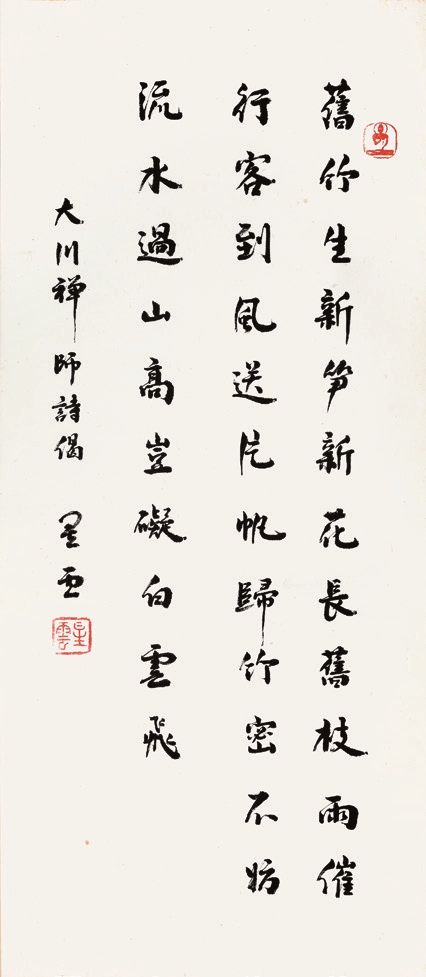 舊竹生新笋新花長舊枝雨催
行客到風送片帆歸竹密不妨
流水過山高豈礙白雲飛
大川禪師詩偈 星雲
星雲